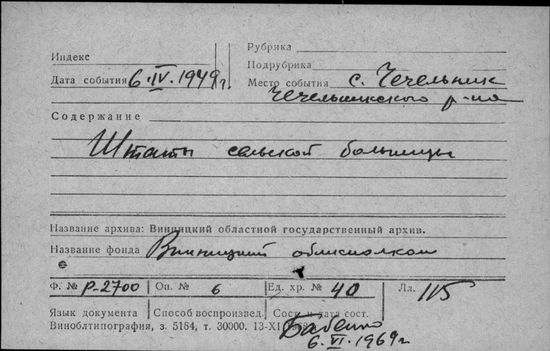 Индекс
Рубрика
Подрубрика
Дата события 6.IV.1949 г.
Место события с. Чечельник
Чечельницкого р-на
Содержание
Штаты сельской больницы
Название архива: Винницкий областной государственный архив.
Название фонда Винницкий облисполком
Ф. № Р-2700 Оп. № 6 Ед. хр. № 40 Лл. 115
Язык документа Способ воспроизвед. Сост. и дата сост.
Виноблтипография, з. 5184, т. 30000. 13-XI
Бабенко
6.VI.1969 г.